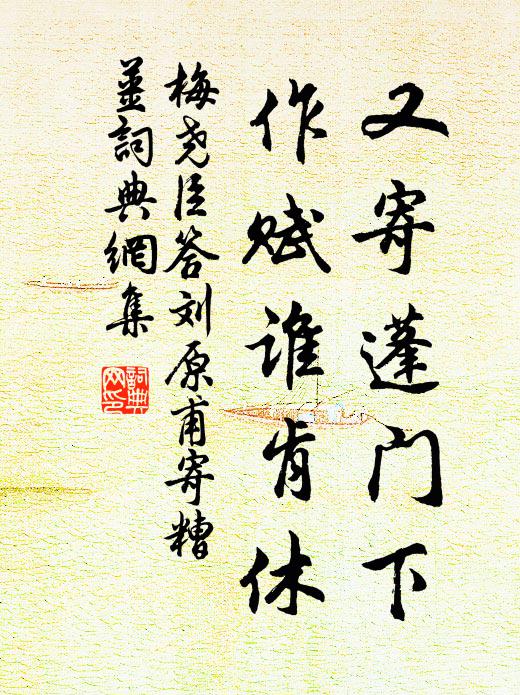 又寄蓬门下
作赋谁肯休
梅尧臣答刘原甫寄糟
姜詞典網集
詞典
网印